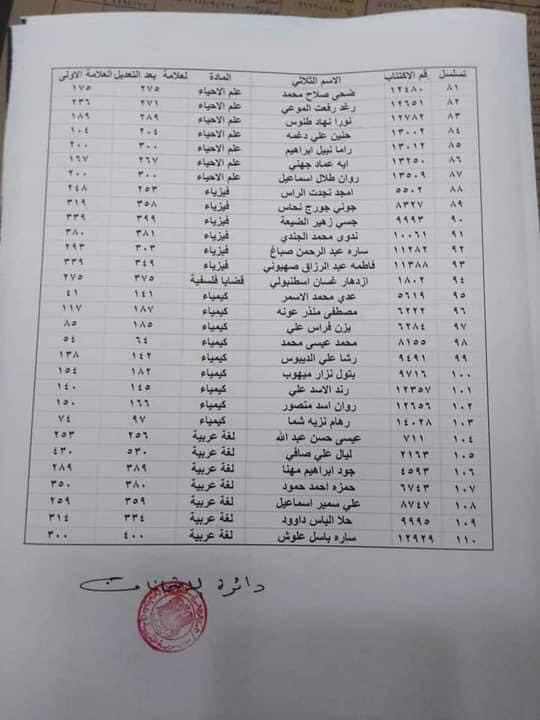 تسلسل رقم الاكتتاب الاسم الثلاثي المادة لعلامة بعد التعديل العلامة الاولى
٨١ ١٢٤٨٠ ضحى صلاح محمد علم الاحياء ٢٧٥ ١٧٥
٨٢ ١٢٦٥١ رغد رفعت الموعي علم الاحياء ٢٧١ ٢٣٦
٨٣ ١٢٧٨٢ نورا نهاد طنوس علم الاحياء ٢٨٩ ١٨٩
٨٤ ١٣٠٠٢ حنين علي دغمه علم الاحياء ٢٠٤ ١٠٤
٨٥ ١٣٠١٢ راما نبيل ابراهيم علم الاحياء ٣٠٠ ٢٠٠
٨٦ ١٣٢٥٠ ايه عماد جهني علم الاحياء ٢٦٧ ١٦٧
٨٧ ١٣٥٠٩ روان طلال اسماعيل علم الاحياء ٣٠٠ ٢٠٠
٨٨ ٥٥٠٢ امجد نجدت الراس فيزياء ٢٥٣ ٢٤٨
٨٩ ٨٣٢٧ جوني جورج نحاس فيزياء ٣٥٨ ٣١٩
٩٠ ٩٩٩٣ جسي زهير الضيعة فيزياء ٣٩٩ ٣٣٩
٩١ ١٠٠٦١ ندوى محمد الجندي فيزياء ٣٨١ ٣٨٠
٩٢ ١١٢٨٢ ساره عبد الرحمن صباغ فيزياء ٣٠٣ ٢٩٣
٩٣ ١١٣٨٨ فاطمه عبد الرزاق صهيوني فيزياء ٣٤٩ ٣٣٩
٩٤ ١٨٠٢ ازدهار غسان اسطنبولي قضايا فلسفية ٣٧٥ ٢٧٥
٩٥ ٥٦١٩ عدي محمد الاسمر كيمياء ١٤١ ٤١
٩٦ ٦٢٢٢ مصطفى منذر عونه كيمياء ١٨٧ ١١٧
٩٧ ٦٢٨٤ يزن فراس علي كيمياء ١٨٥ ٨٥
٩٨ ٨١٥٥ محمد عيسى محمد كيمياء ٦٤ ٥٤
٩٩ ٩٤٩١ رشا علي الديبوس كيمياء ١٤٢ ١٣٨
١٠٠ ٩٧١٦ بتول نزار ميهوب كيمياء ١٨٢ ١٥٤
١٠١ ١٢٣٥٧ رند الاسد علي كيمياء ١٤٥ ١٤٠
١٠٢ ١٢٦٥٦ روان اسد منصور كيمياء ١٦٦ ١٥٠
١٠٣ ١٤٠٢٨ رهام نزيه شما كيمياء ٩٧ ٧٤
١٠٤ ٧١١ عيسى حسن عبد الله لغة عربية ٢٥٦ ٢٥٣
١٠٥ ٢١٦٣ ليال علي صافي لغة عربية ٥٣٠ ٤٣٠
١٠٦ ٤٥٩٣ جود ابراهيم مهنا لغة عربية ٣٨٩ ٢٨٩
١٠٧ ٦٧٤٣ حمزه احمد حمود لغة عربية ٣٨٠ ٣٥٠
١٠٨ ٨٧٤٧ علي سمير اسماعيل لغة عربية ٣٥٩ ٢٥٩
١٠٩ ٩٩٩٥ حلا الياس داوود لغة عربية ٣٣٤ ٣١٤
١١٠ ١٢٩٢٩ ساره باسل علوش لغة عربية ٤٠٠ ٣٠٠
دائرة الامتحانات